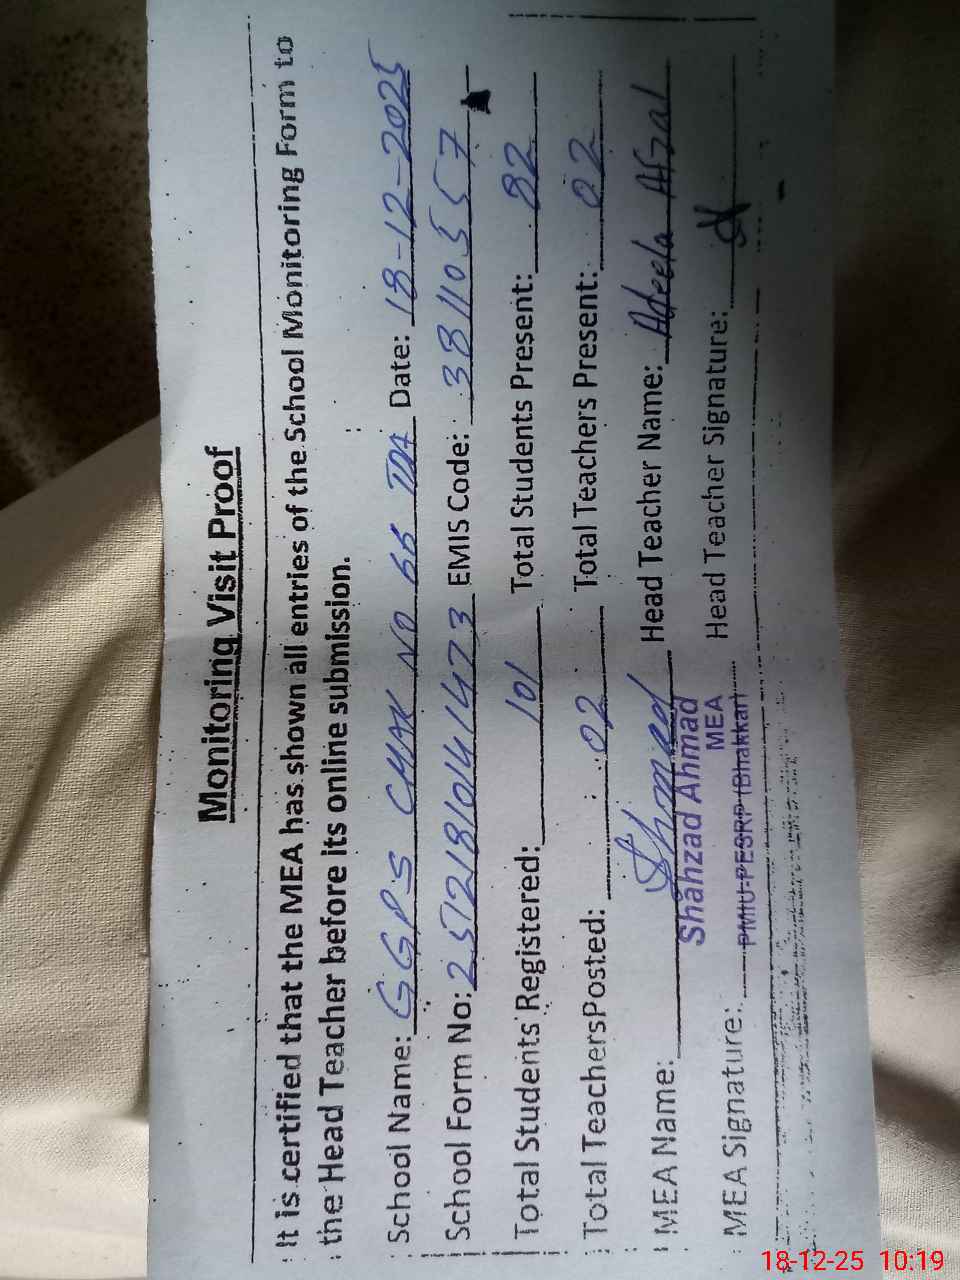 Monitoring Visit Proof
It is certified that the MEA has shown all entries of the School Monitoring Form to
the Head Teacher before its online submission.
School Name: GGPS CHAK NO 66 TDA Date: 18-12-2025
School Form No: 2512180141473 EMIS Code: 38110557
Total Students Registered: 101 Total Students Present: 82
Total TeachersPosted: 02 Total Teachers Present: 02
MEA Name: Shahzad Ahmad Head Teacher Name: Adeela Afzal
MEA
MEA Signature: PMIU-PESRP (Bhakkar) Head Teacher Signature:
18-12-25 10:19